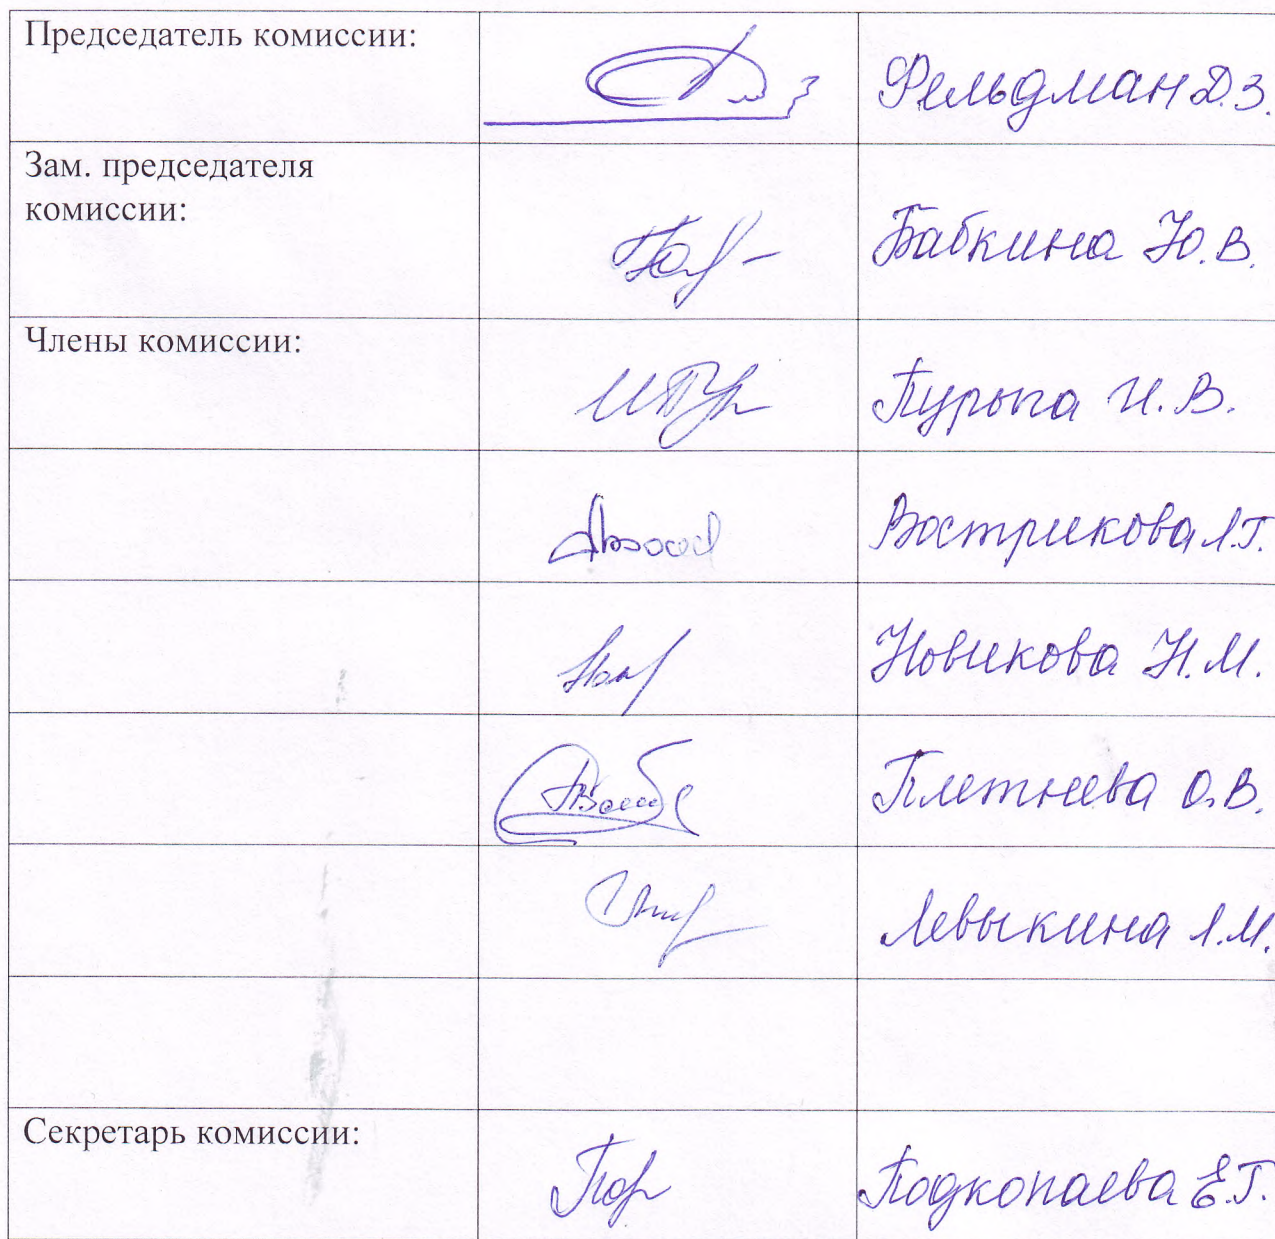 Председатель комиссии:
Фельдман Д.З.
Зам. председателя
комиссии:
Бабкина Ю.В.
Члены комиссии:
Пурыга И.В.
Вострикова Л.Г.
Новикова Н.М.
Плетнева О.В.
Левыкина Л.М.
Секретарь комиссии:
Подкопаева Е.Г.